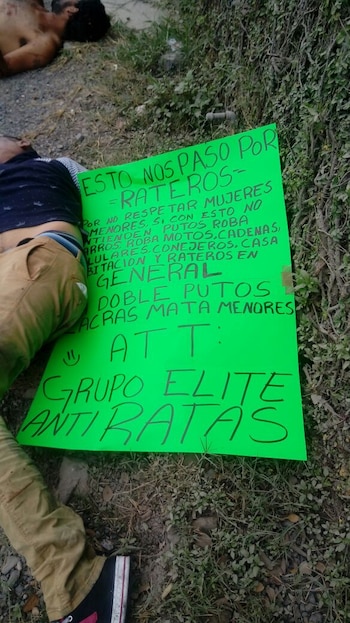 ESTO NOS PASO POR
=RATEROS=
POR NO RESPETAR MUJERES
MENORES. SI, CON ESTO NO
NTIENDEN PUTOS ROBA
ARROS ROBA MOTOS, CADENAS,
LULARES CONEJEROS, CASA
BITACION Y RATEROS EN
GENERAL
DOBLE PUTOS
LACRAS MATA MENORES
ATT:
GRUPO ELITE
ANTI RATAS